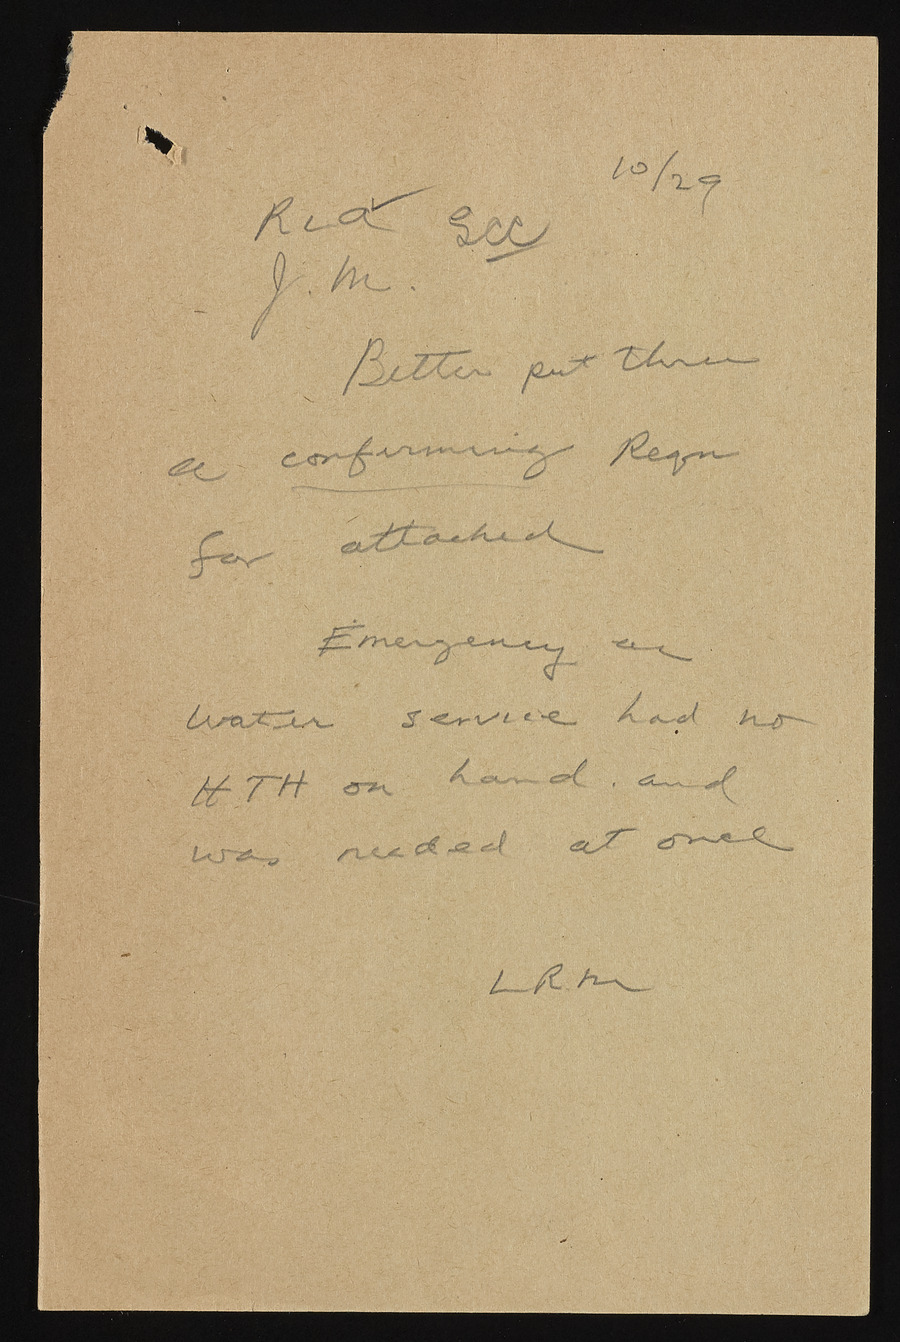 10/29
J. M.
Better put thru
a confirming Reqn
for attached
Emergency as
water service had no
HTH on hand. and
was needed at once
LRM